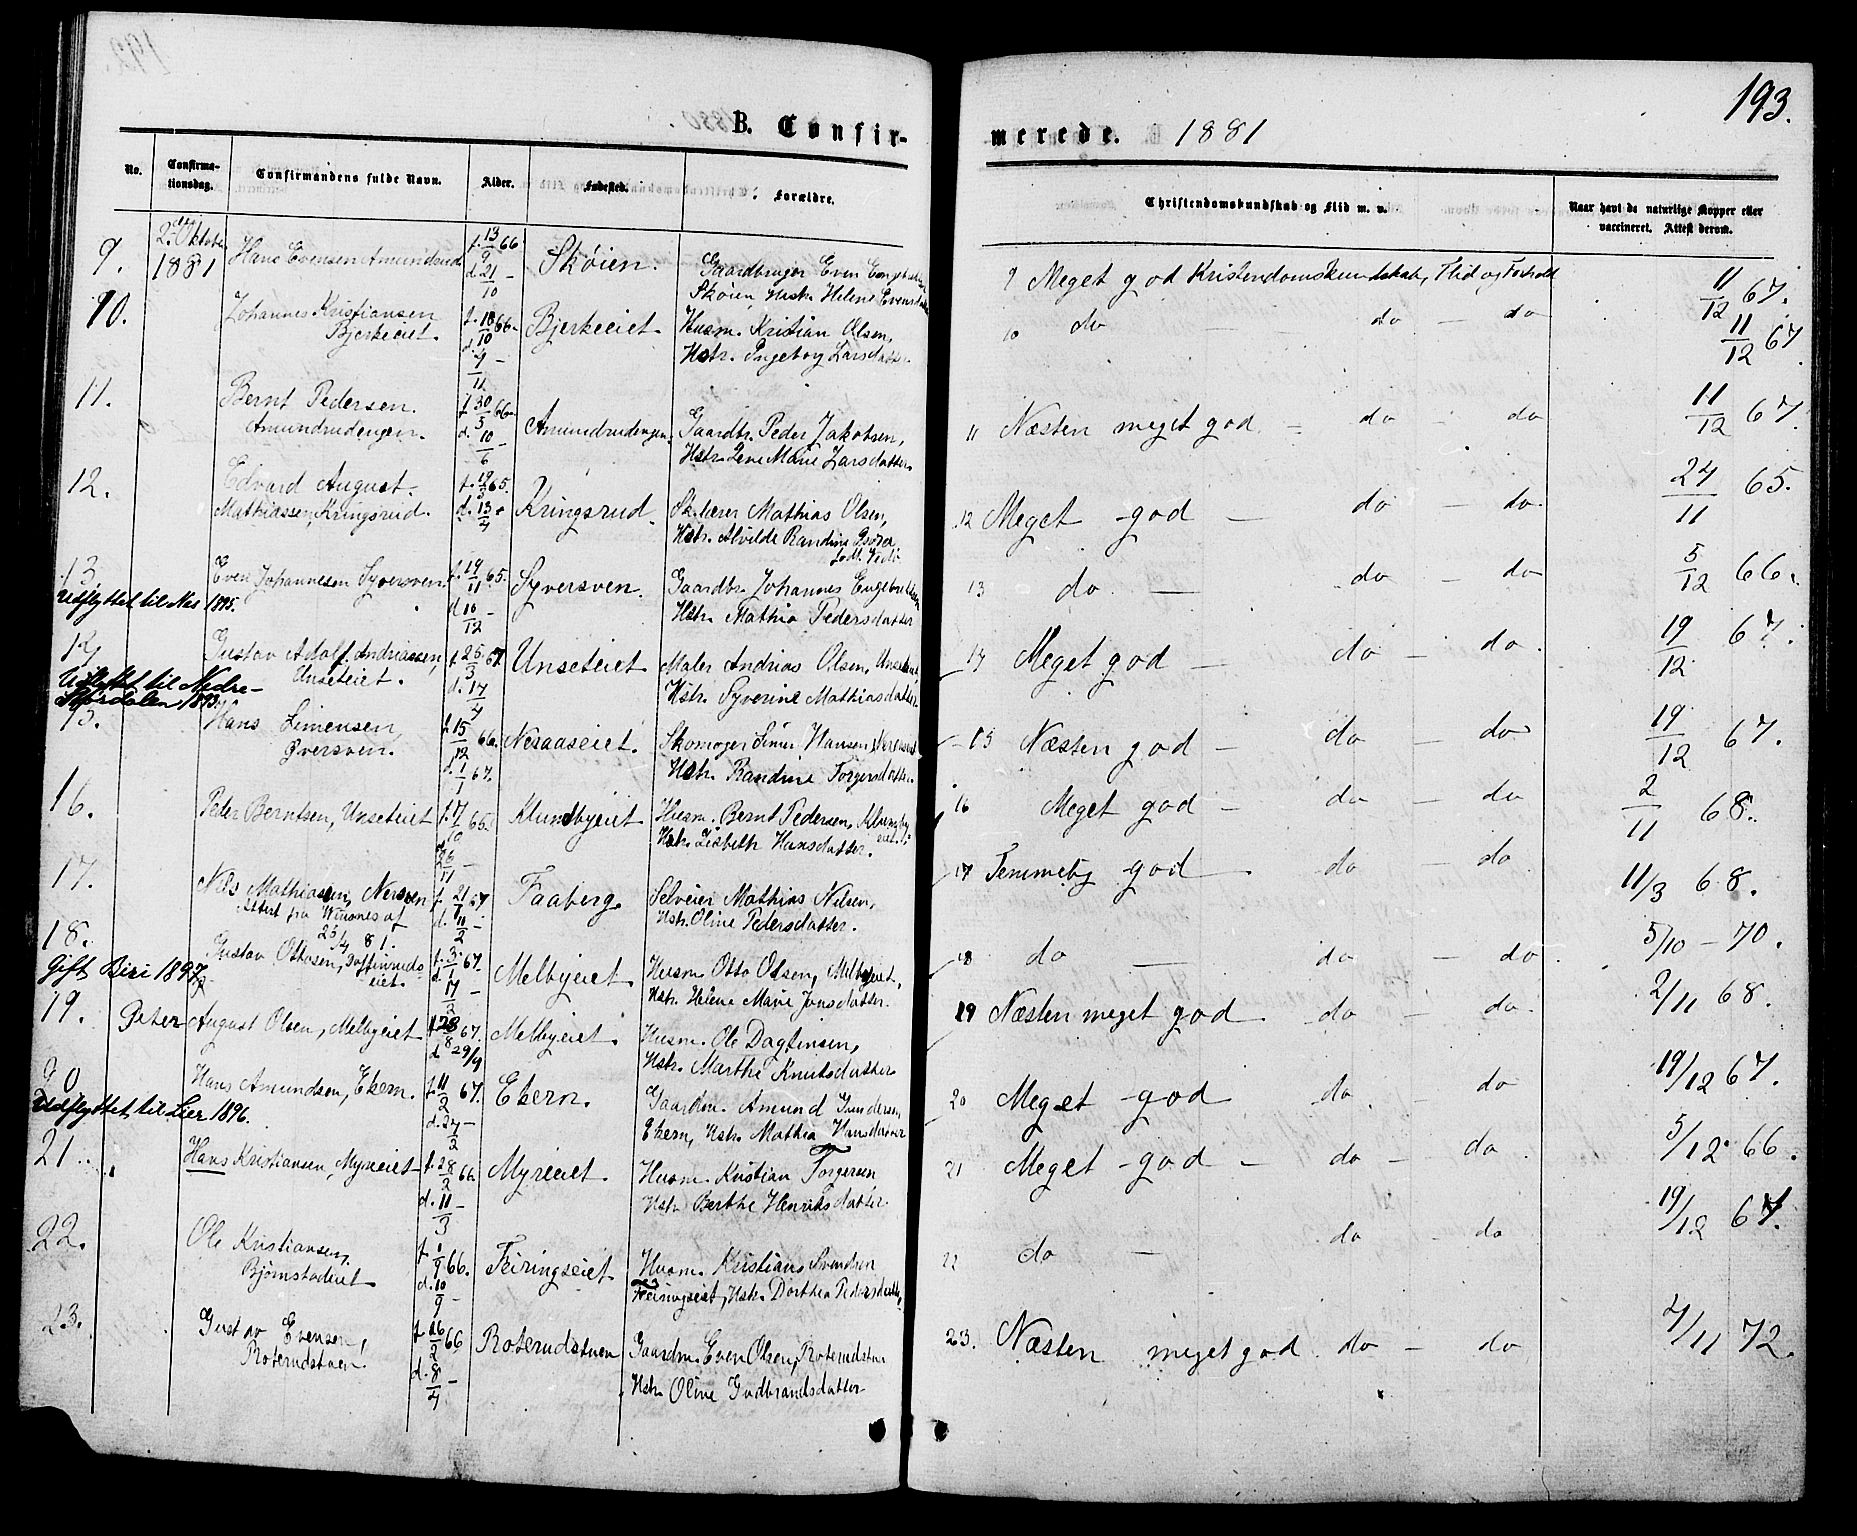 193.
B. Confir-
merede. 1881
No.
Confirma-
tionsdag.
Confirmandens fulde Navn.
Alder.
Fødested.
Forældre.
Christendomskundskab og Flid m. v.
Naar havt de naturlige Kopper eller
vaccineret. Attest derom.
9. 2. Oktober Hans Evensen Amundrud f. 13/9 66 Skøien. Gaardbruger Even
1881 d. 21/10 - Skøien Hustr. Helene Evensdatter
9 Meget god Kristendomskundskab, Flid og Forhold 11/12 67.
10. Johannes Kristiansen f. 18/10 66 Bjerkeeiet. Husm. Kristian Olsen,
Bjerkeeiet. d. 4/11 - Hstr. Ingeborg Larsdatter
10 do - do - do 11/12 67
11. Bernt Pedersen. f. 30/5 66 Amundrudengen. Gaardbr. Peder Jakobsen,
Amundrudengen. d. 10/6 - Hstr. Lene Marie Larsdatter
11 Næsten meget god - do - do 11/12 67.
12. Edvard August. 65. Kringsrud. Mathias Olsen,
Mathiassen, Kringsrud. d. 13/4 Hstr. Alvilde Randine
født
12 Meget god - do - do 24/11 65.
13 Even Johannesen Syversven. f. 19/11 65. Syversven. Gaardbr. Johannes Engebretsen
Udflyttet til Nes 1895. d. 10/12 - Hstr. Mathia Pedersdatter
13 do - do - do 5/12 66.
14 Gustav Adolf Andriassen, f. 26/3 67. Unseteiet Maler Andrias Olsen, Unseteiet,
Unseteiet. d. 14/4 Hstr. Syverine Mathiasdatter
Udflyttet til Nedre-
Stjørdalen 1893.
14 Meget god - do - do. 19/12 67.
15. Hans Simensen f. 15/12 66. Nesaaseiet. Skomager Simen Hansen
d. 1/1 67. Hstr. Randine Torgersdatter.
15 Næsten god - do - do 19/12 67.
16. Peder Berntsen, Unseteiet 66. Klundbyeiet Husm. Bernt Pedersen, Klundby
eiet.
Hstr. Lisbeth Hansdatter.
16 Meget god - do - do 2/11 68.
17. Nils Mathiassen, Nersven f. 21/1 67 Faaberg. Selveier Mathias Nilsen,
Attest fra Vinsnes af d. 11/2 - Hstr. Oline Pedersdatter.
25/4 81.
17 Temmelig god do - do 11/3 68.
18. Gustav Ottosen, f. 3/1 67. Melbyeiet Husm. Otto Olsen, Melbyeiet,
eiet. d. 17/2 - Hstr. Helene Marie Jonsdatter
Gift Biri 1897.
18 do - do - do 5/10 - 70.
19. Peter August Olsen, Melbyeiet f. 28/8 67. Melbyeiet. Husm. Ole Dagfinsen,
d 29/9 Hstr. Marthe Knutsdatter
19 Næsten meget god - do - do. 2/11 68.
20 Hans Amundsen, Ekern. f. 11/2 67. Ekern. Gaardm. Amund Gundersen
Udflyttet til Lier 1896. d. 24/2 - Ekern, Hstr. Mathia Hansdatter
20 Meget god do. - do 19/12 67.
21. Hans Kristiansen, Myreeiet f. 28/2 66. Myreeiet. Husm. Kristian Torgersen
d. 11/3 - Hstr. Berthe Henriksdatter
21 Meget god - do - do 5/12 66.
22. Ole Kristiansen, f. 1/9 66. Feiringseiet Husm. Kristians Svendsen
Bjørnstadeiet d. 10/9 - Feiringseiet, Hstr. Dorthea Pedersdatter
22 do - do - do 19/12 67.
23. Gustav Evensen, f. 26/2 66 Roterudstuen Gaardm. Even Olsen, Roterudstuen
Roterudstuen. d. 8/4 - Hstr. Oline Gudbrandsdatter
23. Næsten meget god. do - do 4/11 72.